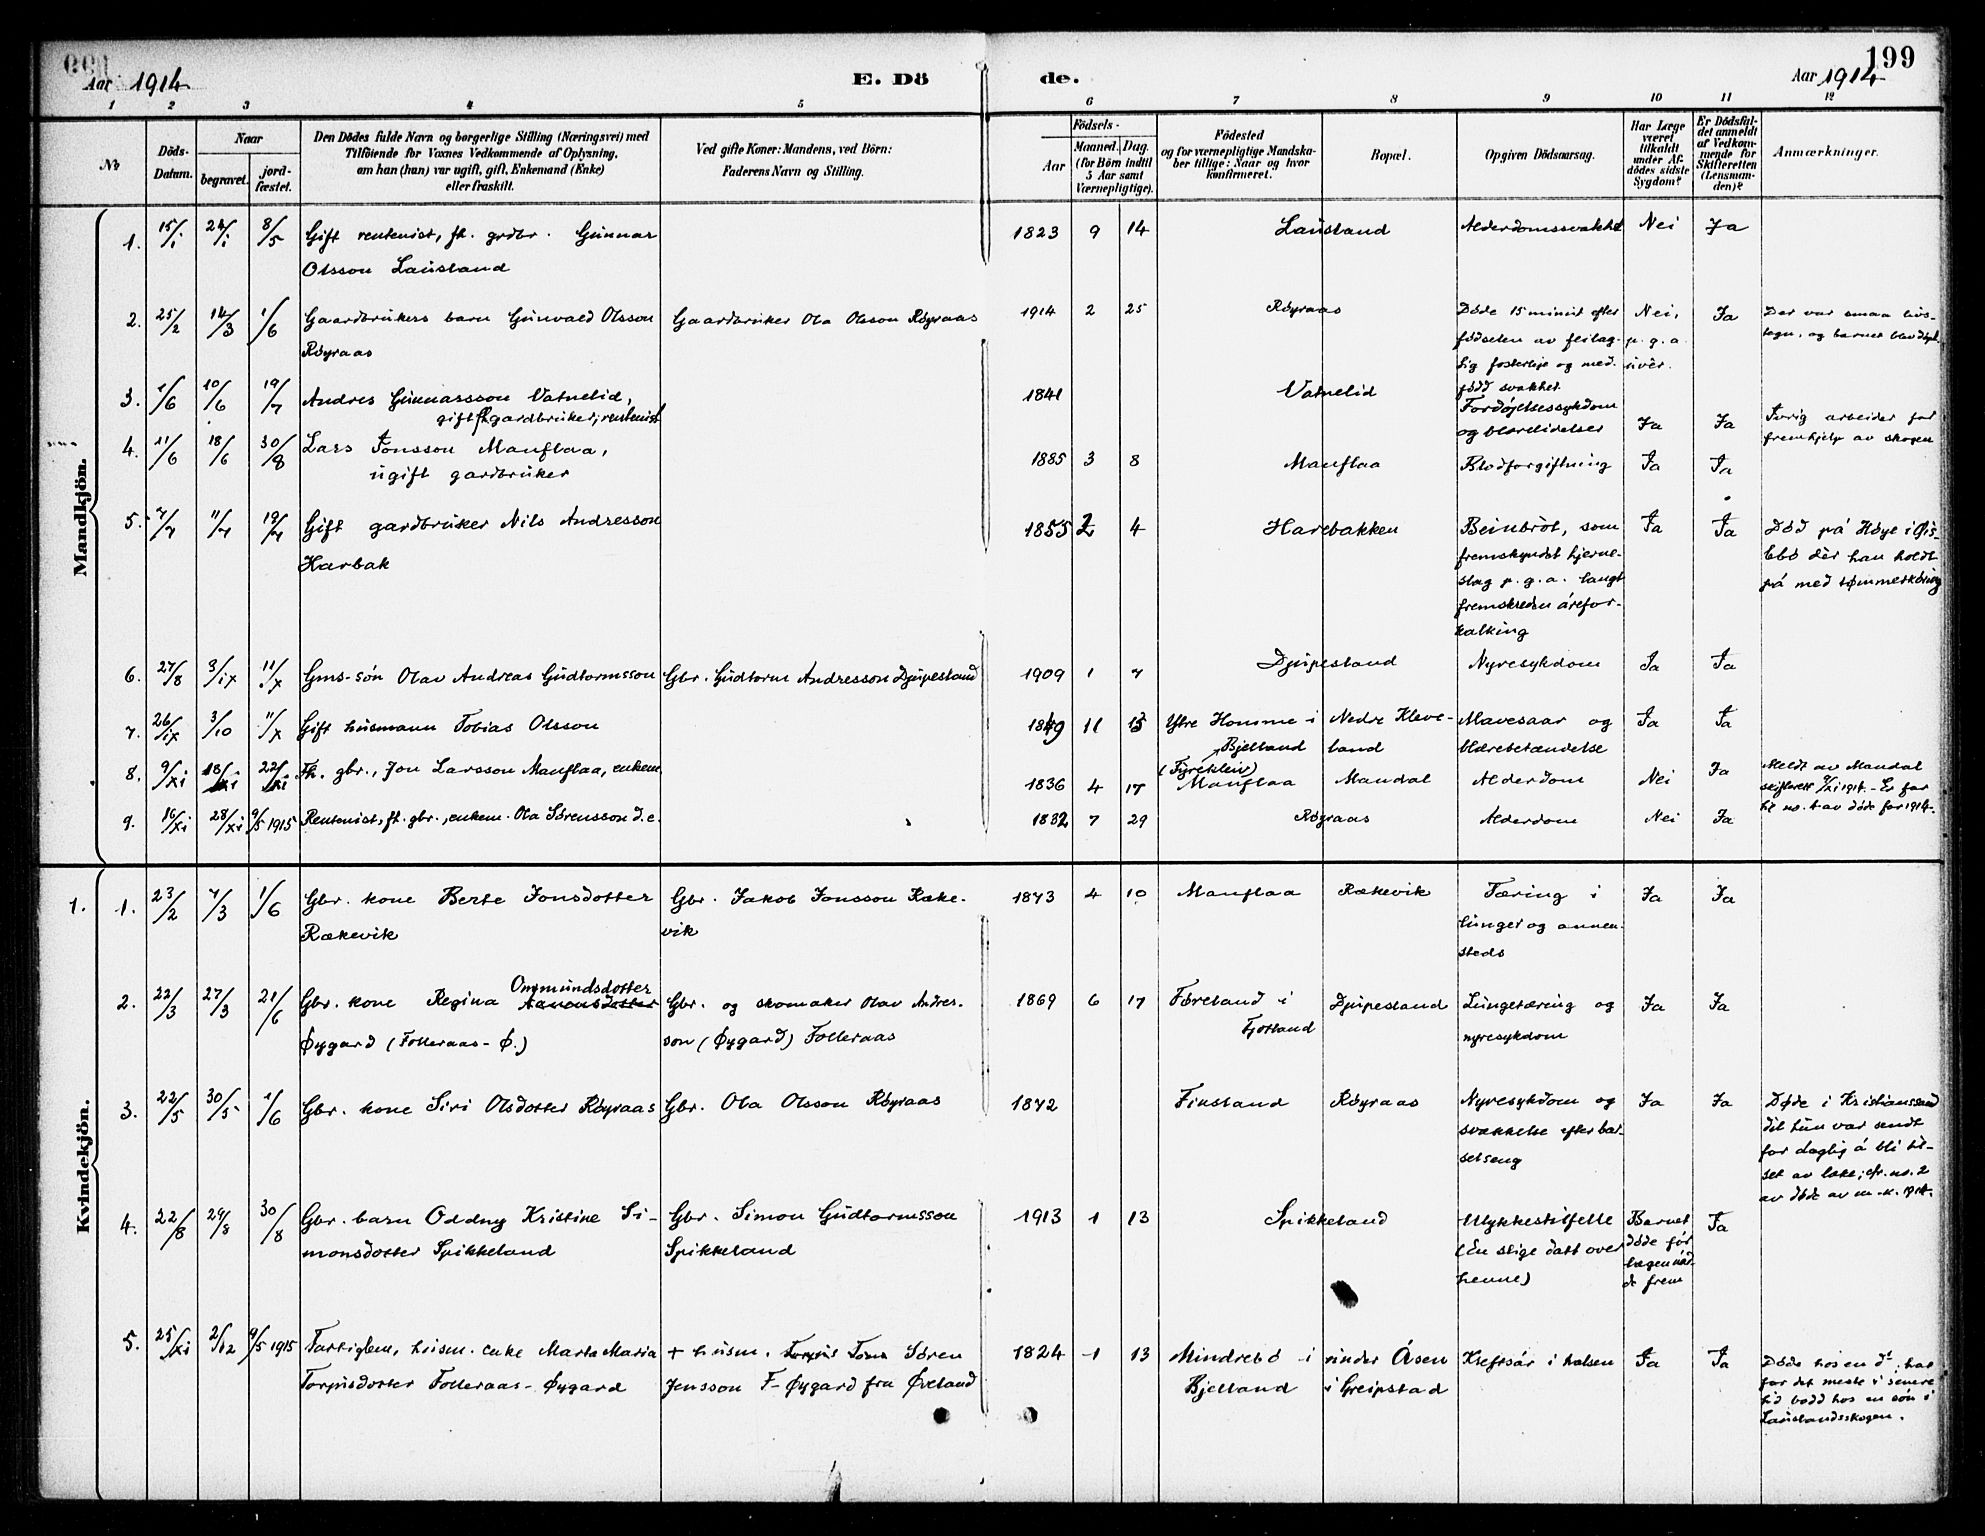 199
Aar 1914
E. Dö de.
Aar 1914
1 2 3 4 5 6 7 8 9 10 11 12
No
Döds-Datum.
Naar
begravet.
jordfæstet.
Den Dödes fulde Navn og borgerlige Stilling (Næringsvei) med
Tilföiende for Voxnes Vedkommende af Oplysning,
om han (hun) var ugift, gift, Enkemand (Enke)
eller fraskilt.
Ved gifte Koner: Mandens, ved Börn:
Faderens Navn og Stilling.
Födsels-
Aar
Maaned. Dag.
(for Börn indtil
5 Aar samt
Værnepligtige).
Födested
og for værnepligtige Mandska-
ber tillige: Naar og hvor
konfirmeret.
Bopæl.
Opgiven Dödsaarsag.
Har Læge
været
tilkaldt
under Af-
dödes sidste
Sygdom?
Er Dödsfal-
det anmeldt
af Vedkom-
mende for
Skifteretten
(Lensman-
den)?
Anmærkninger.
Mandkjön.
1. 15/1 24/1 8/5 Gift rentenist, fh. grdbr. Gunnar
Olsson Lausland
1823 9 14 Lausland Alderdomssvakhet Nei Ja
2. 25/2 14/3 1/6 Gaardbrukers barn Gunvald Olsson
Røyraas
Gaardbruker Ola Olsson Røyraas
1914 2 25 Røyraas
Døde 15 minut efter
fødselen av feilag-
tig fosterleie og med-
fødd svakhet
Nei,
p.g.a.
uvêr.
Ja
Der var smaa livs-
tegn, og barnet blev døpt.
3. 1/6 10/6 19/7 Andres Gunnarsson Vatnelid,
gift fh gardbruker, rentenist
1841 Vatnelid
Fordøjelsessykdom
og blærelidelser
Ja Ja
Ivrig arbeider for
fremhjelp av skogen
4. 11/6 18/6 30/8 Lars Jonsson Mauflaa,
ugift gardbruker
1885 3 8 Mauflaa Blodforgiftning Ja Ja
5. 7/7 11/7 19/7 Gift gardbruker Nils Andresson
Harbak
1855 2 4 Harebakken
Beinbròt, som
fremskyndet hjerne-
slag p.g.a. langt
fremskreden árefor-
kalking
Ja Ja
Død på Høye i Øis-
lebø dèr han holdt
på med tømmerkøring
6. 27/8 3/ix 11/x Gms-søn Olav Andreas Gudtormsson
Gbr. Gudtorm Andresson Djupesland
1909 1 7 Djupesland Nyresykdom Ja Ja
7. 26/ix 3/10 11/x Gift husmann Tobias Olsson
1849 11 13 Ytre Homme i
Bjelland
Nedre Kleve-
land
Mavesaar og
blærebetændelse
Ja Ja
8. 9/xi 18/xi 22/xi Fh. gbr., Jon Larsson Mauflaa, enkem.
1836 4 17 Mauflaa Mandal Alderdom Nei Ja
Meldt av Mandal
9. 16/xi 28/xi 9/5 1915 Rentenist, fh. gbr., enkem. Ola Sørensson d.e.
1832 7 29 Røyraas Alderdom Nei Ja
Kvindekjön.
1. 1. 23/2 7/3 1/6 Gbr. kone Berte Jonsdotter
Rækevik
Gbr. Jakob Jonsson Ræke-
vik
1873 4 10 Mauflaa Rækevik
Tæring i
lunger og annen-
steds
Ja Ja
2. 22/3 27/3 21/6 Gbr. kone Regina Ommundsdotter
Øygard (Folleraas-Ø.)
Gbr. og skomaker Olav Andres-
son (Øygard) Folleraas
1869 6 17 Føreland i
Fjotland
Djupesland
Lungetæring og
nyresykdom
Ja Ja
3. 22/5 30/5 1/6 Gbr. kone Siri Olsdotter Røyraas
Gbr. Ola Olsson Røyraas
1872 Finsland Røyraas
Nyresykdom og
svækkelse efter bar-
selseng
Ja Ja
Døde i Kristianssand
dit hun var sendt
for daglig á bli til-
set av læke; cfr. no. 2
av døde av m.-k. 1914.
4. 22/8 29/8 30/8 Gbr. barn Oddny Kristine Si-
monsdotter Spikkeland
Gbr. Simon Gudtormsson
Spikkeland
1913 1 13 Spikkeland
Ulykkestilfelle
(En stige datt over
henne)
Barnet
døde før
lægen nád-
de frem
Ja
5. 25/xi 2/12 9/5 1915 Fattiglem, husm. enke Marta Maria
Torjusdotter Folleraas-Øygard
+ husm. Søren
Jensson F-Øygard fra Øveland
1824 1 13 Mindrebø i
Bjelland
under Åsen
i Greipstad
Kreftsár i halsen
Ja Ja
Døde hos en dt. har
for det meste i senere
tid bodd hos en søn i
Lauslandsskogen.